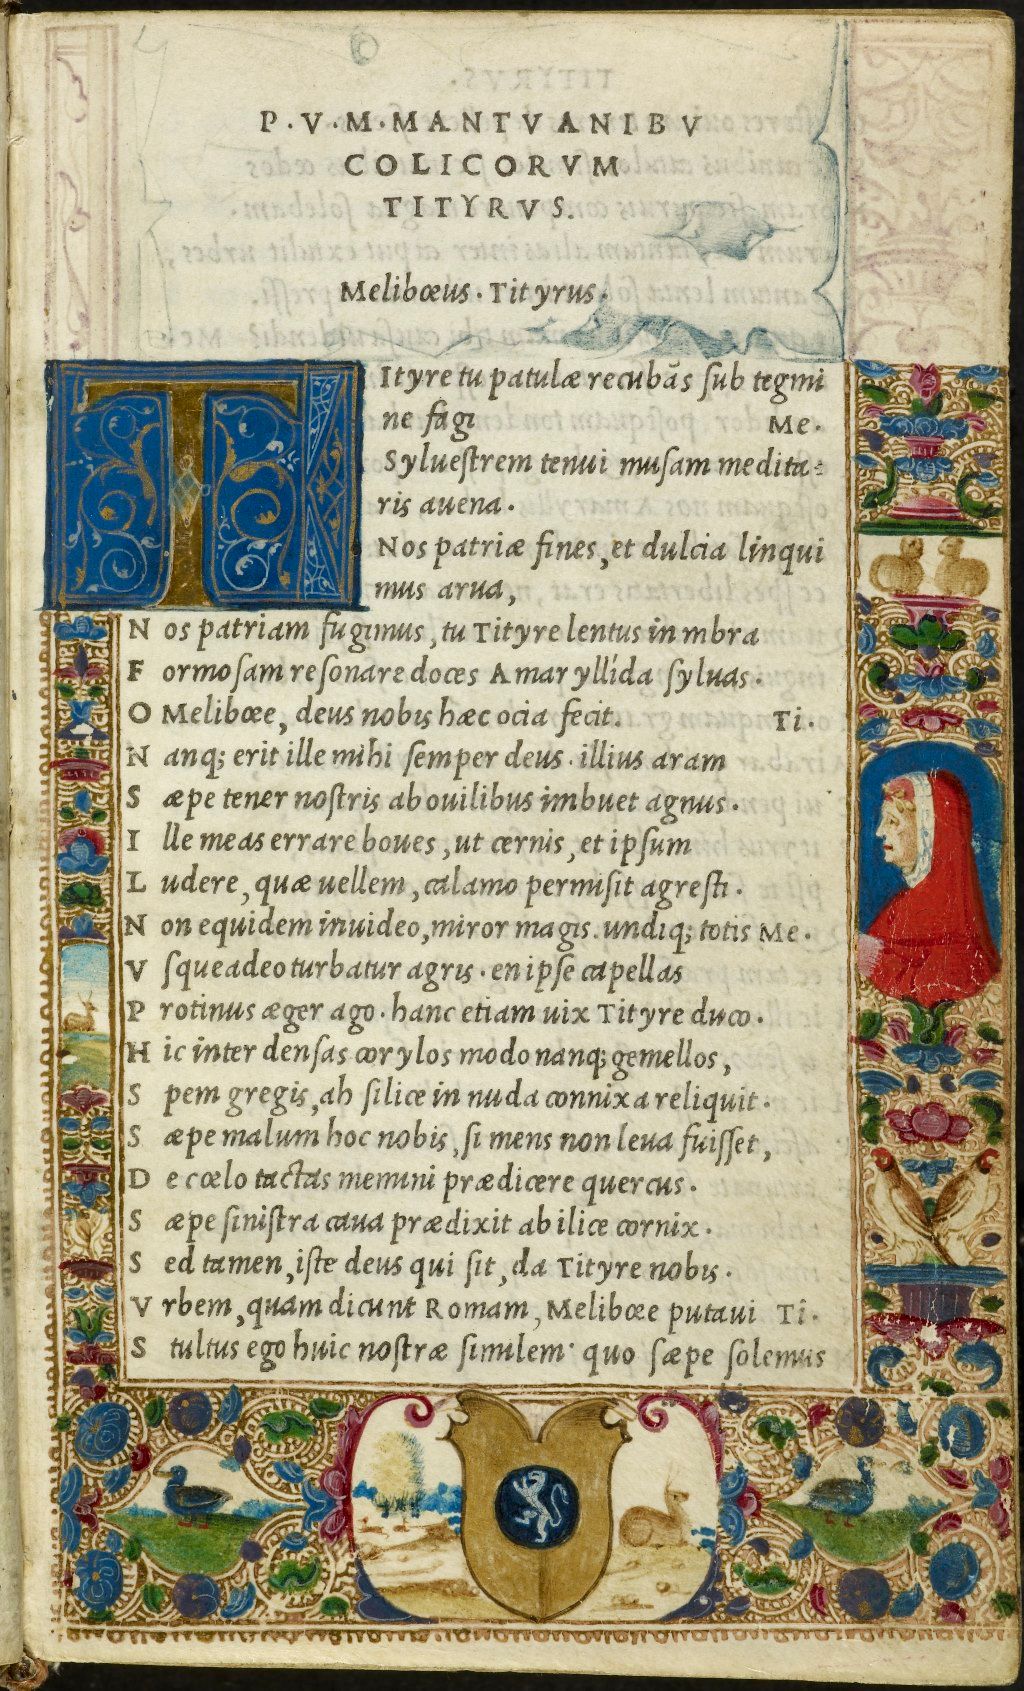 P · V · M · MANTVANI BV
COLICORVM
TITYRVS.
Melibœus · Tityrus.
TItyre tu patulæ recubãs ſub tegmi
ne fagi Me.
Sylueſtrem tenui muſam medita-
ris auena.
Nos patriæ fines, et dulcia linqui
mus arua,
Nos patriam fugimus, tu Tityre lentus in mbra
Formoſam reſonare doces Amaryllída ſyluas.
O Melibœe, deus nobis hæc ocia fecit. Ti.
Nanq; erit ille mihi ſemper deus. illius aram
Sæpe tener noſtris ab ouilibus imbuet agnus.
Ille meas errare boues, ut cernis, et ipſum
Ludere, quæ uellem, calamo permiſit agreſti.
Non equidem inuideo, miror magis. undiq; totis Me.
Vſque adeo turbatur agris. en ipſe capellas
Protinus æger ago. hanc etiam uix Tityre duco.
Hic inter denſas corylos modo nanq; gemellos,
Spem gregis, ah ſilice in nuda connixa reliquit.
Sæpe malum hoc nobis, ſi mens non leua fuiſſet,
De cœlo tactas memini prædicere quercus.
Sæpe ſiniſtra caua prædixit ab ilice cornix.
Sed tamen, iſte deus qui ſit, da Tityre nobis.
Vrbem, quam dicunt Romam, Melibœe putaui Ti.
Stultus ego huic noſtræ ſimilem· quo ſæpe ſolemus